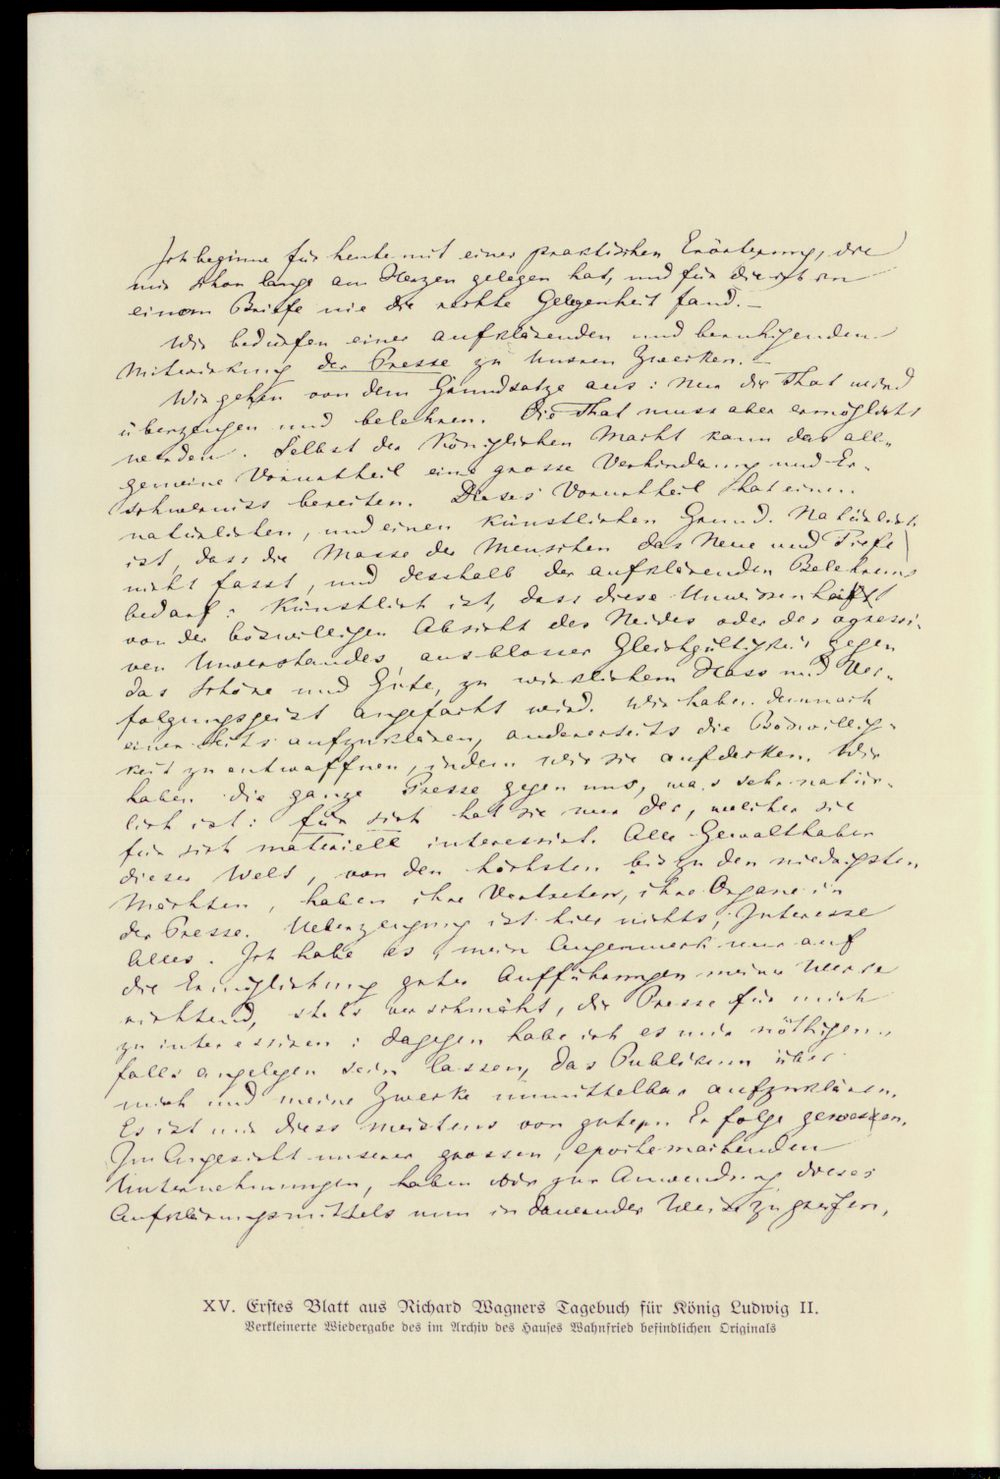 Ich beginne für heute mit einer praktischen Erörterung, die
mir schon lange am Herzen gelegen hat, und für die ich in
einem Briefe nie die rechte Gelegenheit fand. —
Wir bedürfen einer aufklärenden und beruhigenden
Mitwirkung der Presse zu unsren Zwecken. —
Wir gehen von dem Grundsatze aus: nur die That wird
überzeugen und belehren. Die That muss aber ermöglicht
werden. Selbst der Königlichen Macht kann das all-
gemeine Vorurtheil eine grosse Verhinderung und Er-
schwerniss bereiten. Dieses Vorurtheil hat einen
natürlichen, und einen künstlichen Grund. Natürlich
ist, dass die Masse der Menschen das Neue und Tiefe
nicht fasst, und desshalb der aufklärenden Belehrung
bedarf: Künstlich ist, dass diese Unwissenheit
von der böswilligen Absicht des Neides oder des agressi-
ven Unverstandes, aus blosser Gleichgültigkeit gegen
das Schöne und Gute, zu wirklichem Hass und Ver-
folgungsgeist angefacht wird. Wir haben demnach
einerseits aufzuklären, andererseits die Böswillig-
keit zu entwaffnen, indem wir sie aufdecken. Wir
haben die ganze Presse gegen uns, was sehr natür-
lich ist: für sich hat sie nur der, welcher sie
für sich materiell interessirt. Alle Gewalthaber
dieser Welt, von den höchsten bis zu den niedrigsten
Mächten, haben ihre Vertreter, ihre Organe in
der Presse. Ueberzeugung ist hier nichts, Interesse
Alles. Ich habe es, mein Augenmerk nur auf
die Ermöglichung guter Aufführungen meiner Werke
richtend, stets verschmäht, die Presse für mich
zu interessiren: dagegen habe ich es mir nöthigen-
falls angelegen sein lassen, das Publikum über
mich und meine Zwecke unmittelbar aufzuklären.
Es ist mir diess meistens von gutem Erfolge gewesen.
Im Angesicht unserer grossen, epochemachenden
Unternehmungen, haben wir zur Anwendung dieses
Aufklärungsmittels nun in dauernder Weise zu greifen,
XV. Erstes Blatt aus Richard Wagners Tagebuch für König Ludwig II.
Verkleinerte Wiedergabe des im Archiv des Hauses Wahnfried befindlichen Originals